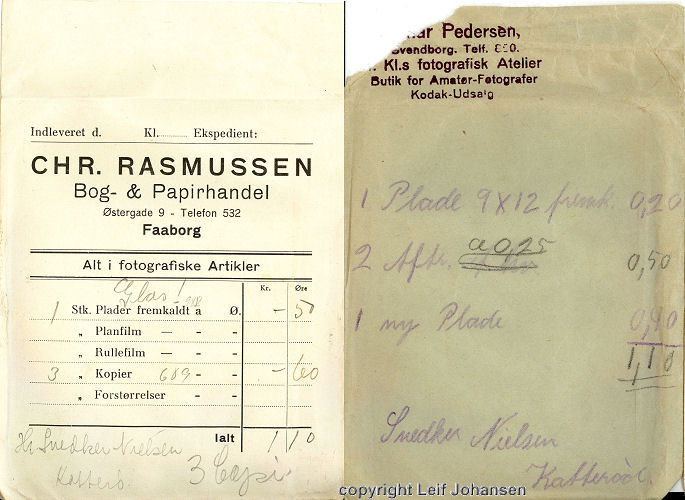 Indleveret d. Kl. Ekspedient:
CHR. RASMUSSEN
Bog- & Papirhandel
Østergade 9 - Telefon 532
Faaborg
Alt i fotografiske Artikler
Kr. Øre
Glas!
1 Stk. Plader fremkaldt a Ø. - 50
„ Planfilm — - -
„ Rullefilm — - -
3 „ Kopier 6x9 - - - 60
„ Forstørrelser - -
Ialt 1 10
Hr. Snedker Nielsen
3 Copi
Pedersen,
Svendborg. Telf.
Kl.s fotografisk Atelier
Butik for Amatør-Fotografer
Kodak-Udsalg
1 Plade 9X12 fremk. 0,20
a 0,25
2 Aftr. 0,50
1 ny Plade 0,40
1,10
Snedker Nielsen
copyright Leif Johansen